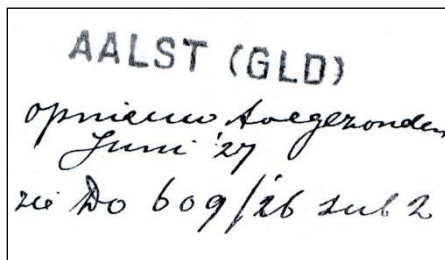 AALST (GLD)
opnieuw toegezonden
Juni '27
zie Do 609/26 sub 2